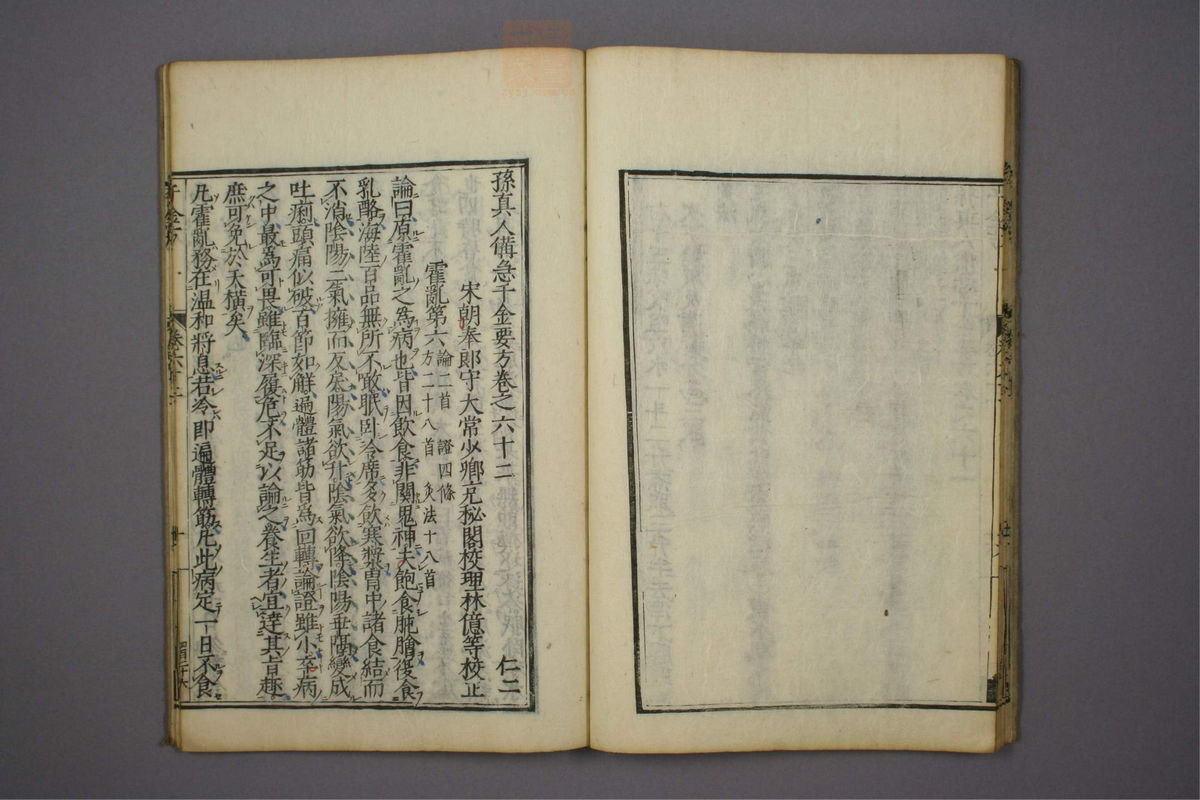 孫真人備急千金要方卷之六十二　仁二
宋朝奉郎守太常少卿充秘閣校理林億等校正
霍亂第六 論二首 證四條
方二十八首 灸法十八首
論曰原霍亂之為病也皆因飲食非關鬼神夫飽食肫膾復食
乳酪海陸百品無所不噉眠卧冷席多飲寒漿胃中諸食結而
不消陰陽二氣擁而反戾陽氣欲升陰氣欲降陰陽乖隔變成
吐痢頭痛似破百節如解遍體諸筋皆為回轉論證雖小卒病
之中最為可畏雖臨深履危不足以論之養生者宜達其旨趣
庶可免於夭橫矣
凡霍亂務在温和將息若冷即遍體轉筋凡此病定一日不食